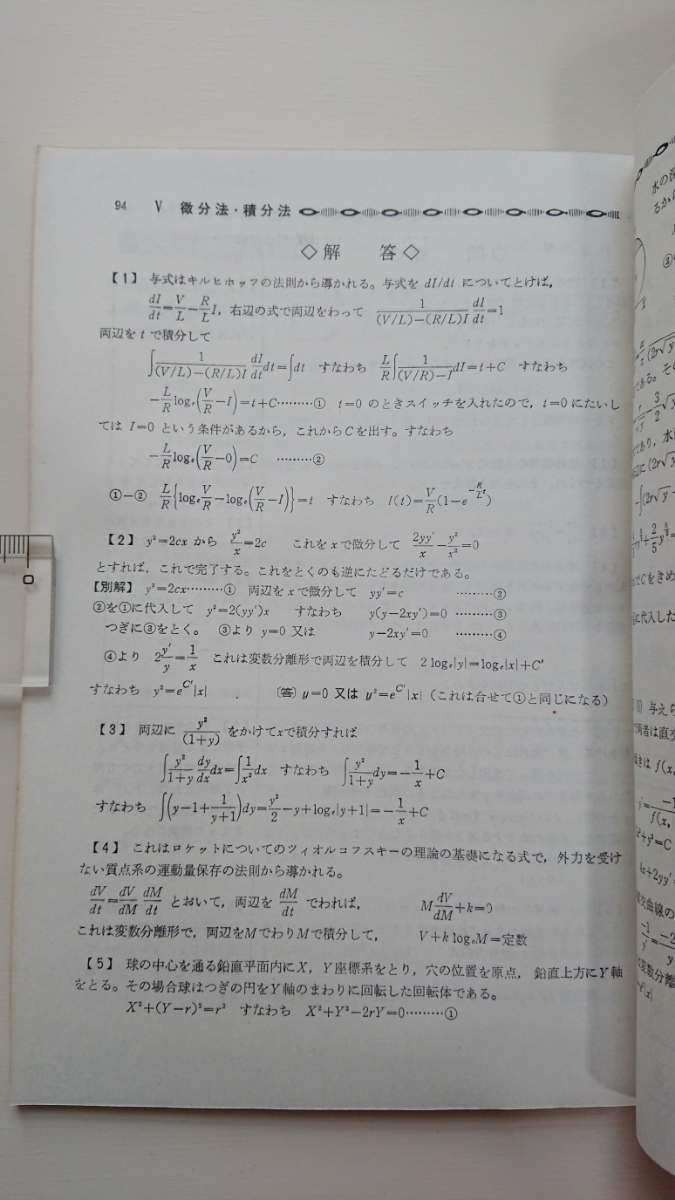 94 V 微分法・積分法
◇解 答◇
【1】 与式はキルヒホッフの法則から導かれる。与式を dI/dt についてとけば,
dI/dt=V/L−(R/L)I, 右辺の式で両辺をわって 1/((V/L)−(R/L)I) dI/dt=1
両辺を t で積分して
∫1/((V/L)−(R/L)I) dI/dt dt=∫dt すなわち L/R∫1/((V/R)−I) dI=t+C すなわち
−L/R logₑ(V/R−I)=t+C………① t=0 のときスイッチを入れたので, t=0 にたいし
ては I=0 という条件があるから, これからCを出す。すなわち
−L/R logₑ(V/R−0)=C ………②
①−② L/R{logₑV/R−logₑ(V/R−I)}=t すなわち I(t)=V/R(1−e^(−(R/L)t))
【2】 y²=2cx から y²/x=2c これを x で微分して 2yy′/x−y²/x²=0
とすれば, これで完了する。これをとくのも逆にたどるだけである。
【別解】 y²=2cx………① 両辺を x で微分して yy′=c ………②
②を①に代入して y²=2(yy′)x すなわち y(y−2xy′)=0 ………③
つぎに③をとく。 ③より y=0 又は y−2xy′=0 ………④
④より 2y′/y=1/x これは変数分離形で両辺を積分して 2 logₑ|y|=logₑ|x|+C′
すなわち y²=e^C′|x| (答) y=0 又は y²=e^C′|x| (これは合せて①と同じになる)
【3】 両辺に y²/(1+y) をかけてxで積分すれば
∫y²/(1+y) dy/dx dx=∫1/x² dx すなわち ∫y²/(1+y) dy=−1/x+C
すなわち ∫(y−1+1/(y+1))dy=y²/2−y+logₑ|y+1|=−1/x+C
【4】 これはロケットについてのツィオルコフスキーの理論の基礎になる式で, 外力を受け
ない質点系の運動量保存の法則から導かれる。
dV/dt=dV/dM dM/dt とおいて, 両辺を dM/dt でわれば, M dV/dM+k=0
これは変数分離形で, 両辺をMでわりMで積分して, V+k logₑM=定数
【5】 球の中心を通る鉛直平面内にX, Y座標系をとり, 穴の位置を原点, 鉛直上方にY軸
をとる。その場合球はつぎの円をY軸のまわりに回転した回転体である。
X²+(Y−r)²=r² すなわち X²+Y²−2rY=0………①
0